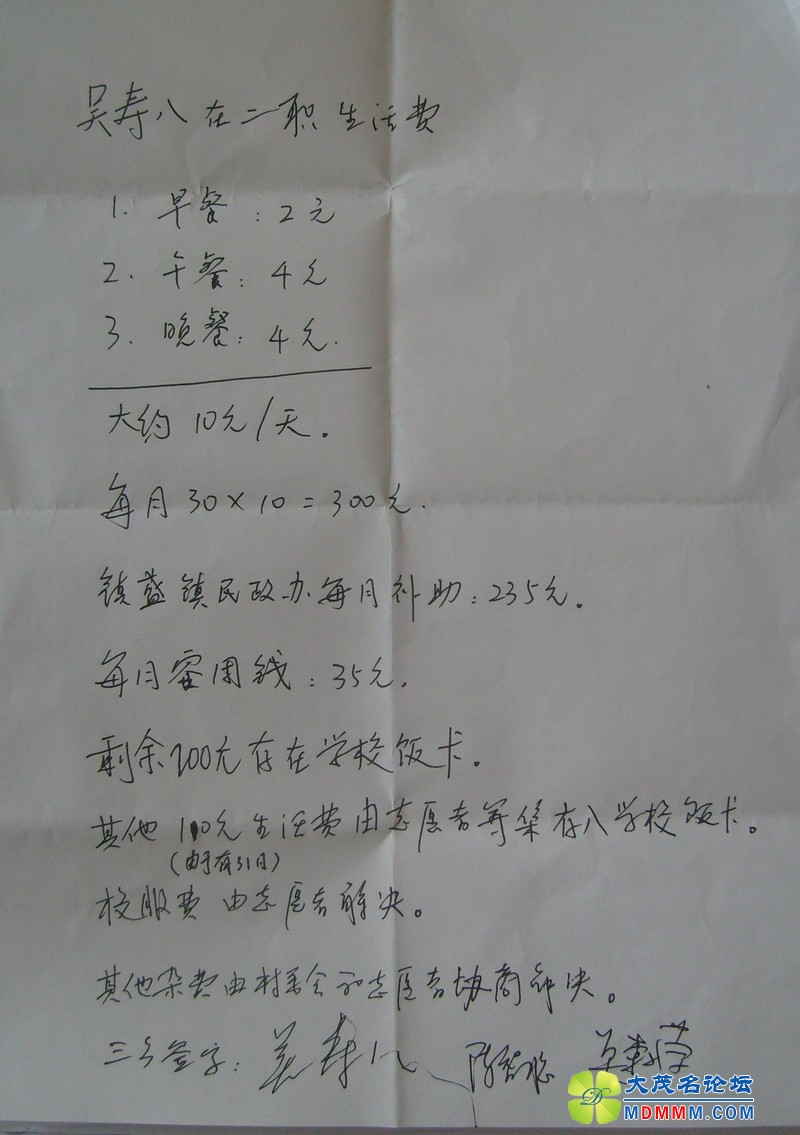 吴寿八在二职生活费
1. 早餐：2元
2. 午餐：4元
3. 晚餐：4元.
大约10元/天。
每月30×10=300元.
镇盛镇民政办每月补助：235元。
每月零用钱：35元.
剩余200元存在学校饭卡。
其他110元生活费由志愿者筹集存入学校饭卡。
(由于有31日)
校服费由志愿者解决。
其他杂费由村委会和志愿者协商解决。
三方签字：吴寿八
大茂名论坛
MDMMM.COM